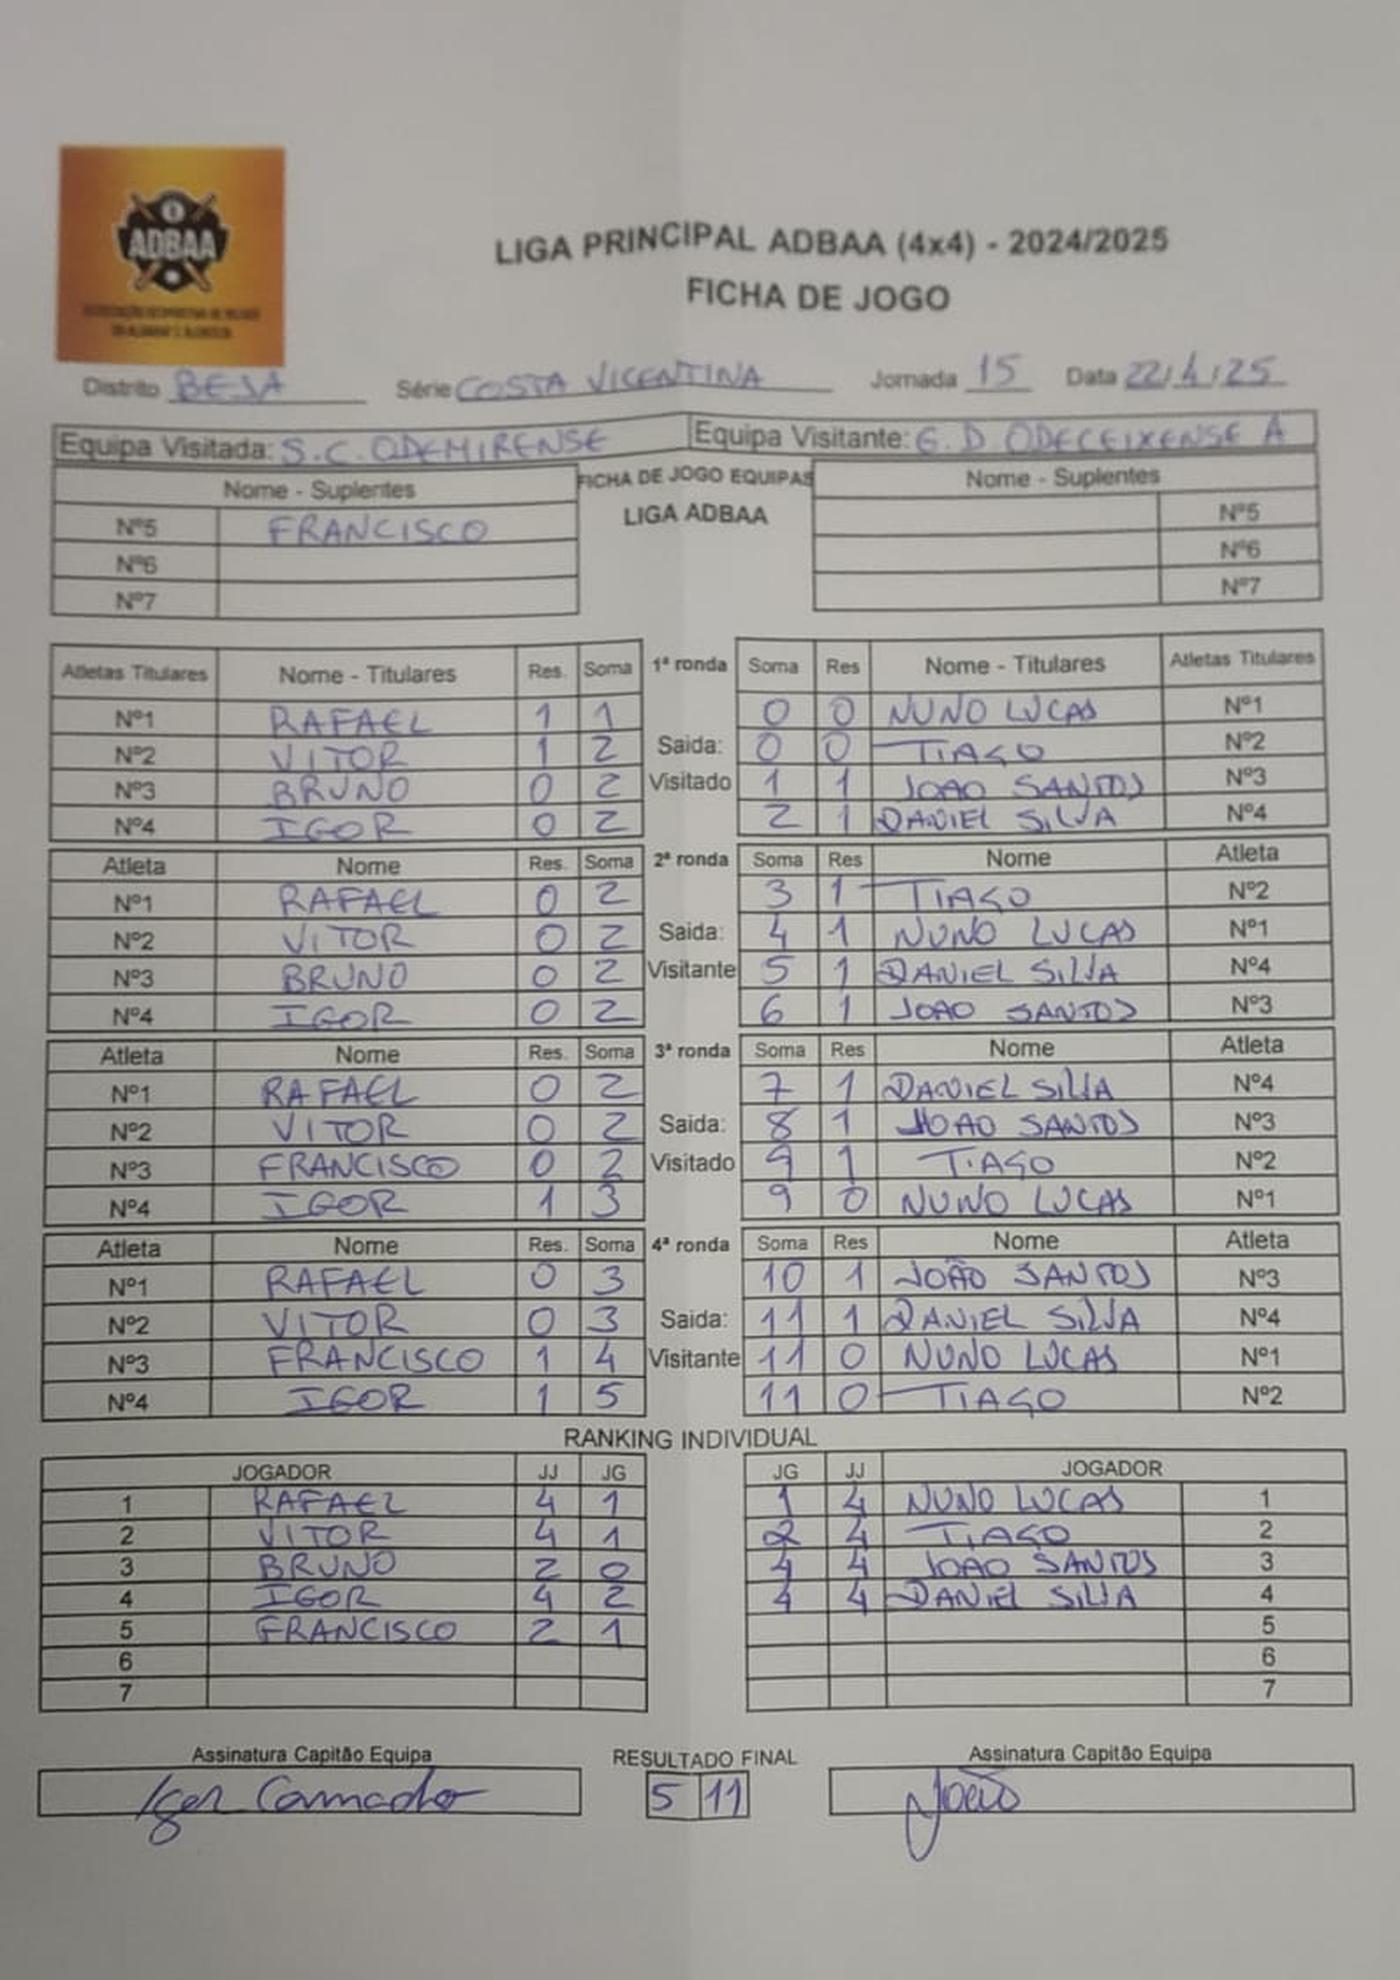 ADBAA
LIGA PRINCIPAL ADBAA (4x4) - 2024/2025
FICHA DE JOGO
Distrito BEJA Série COSTA VICENTINA Jornada 15 Data 22/4/25
Equipa Visitada: S.C. ODEMIRENSE Equipa Visitante: G.D ODECEIXENSE A
Nome - Suplentes FICHA DE JOGO EQUIPAS Nome - Suplentes
Nº5 FRANCISCO LIGA ADBAA Nº5
Nº6 Nº6
Nº7 Nº7
Atletas Titulares Nome - Titulares Res. Soma 1ª ronda Soma Res Nome - Titulares Atletas Titulares
Nº1 RAFAEL 1 1 0 0 NUNO LUCAS Nº1
Nº2 VITOR 1 2 Saida: 0 0 TIAGO Nº2
Nº3 BRUNO 0 2 Visitado 1 1 JOAO SANTOS Nº3
Nº4 IGOR 0 2 2 1 DANIEL SILVA Nº4
Atleta Nome Res. Soma 2ª ronda Soma Res Nome Atleta
Nº1 RAFAEL 0 2 3 1 TIAGO Nº2
Nº2 VITOR 0 2 Saida: 4 1 NUNO LUCAS Nº1
Nº3 BRUNO 0 2 Visitante 5 1 DANIEL SILVA Nº4
Nº4 IGOR 0 2 6 1 JOAO SANTOS Nº3
Atleta Nome Res. Soma 3ª ronda Soma Res Nome Atleta
Nº1 RAFAEL 0 2 7 1 DANIEL SILVA Nº4
Nº2 VITOR 0 2 Saida: 8 1 JOAO SANTOS Nº3
Nº3 FRANCISCO 0 2 Visitado 9 1 TIAGO Nº2
Nº4 IGOR 1 3 9 0 NUNO LUCAS Nº1
Atleta Nome Res. Soma 4ª ronda Soma Res Nome Atleta
Nº1 RAFAEL 0 3 10 1 JOÃO SANTOS Nº3
Nº2 VITOR 0 3 Saida: 11 1 DANIEL SILVA Nº4
Nº3 FRANCISCO 1 4 Visitante 11 0 NUNO LUCAS Nº1
Nº4 IGOR 1 5 11 0 TIAGO Nº2
RANKING INDIVIDUAL
JOGADOR JJ JG JG JJ JOGADOR
1 RAFAEL 4 1 1 4 NUNO LUCAS 1
2 VITOR 4 1 2 4 TIAGO 2
3 BRUNO 2 0 4 4 JOAO SANTOS 3
4 IGOR 4 2 4 4 DANIEL SILVA 4
5 FRANCISCO 2 1 5
6 6
7 7
Assinatura Capitão Equipa RESULTADO FINAL Assinatura Capitão Equipa
Igor Camacho 5 11 João